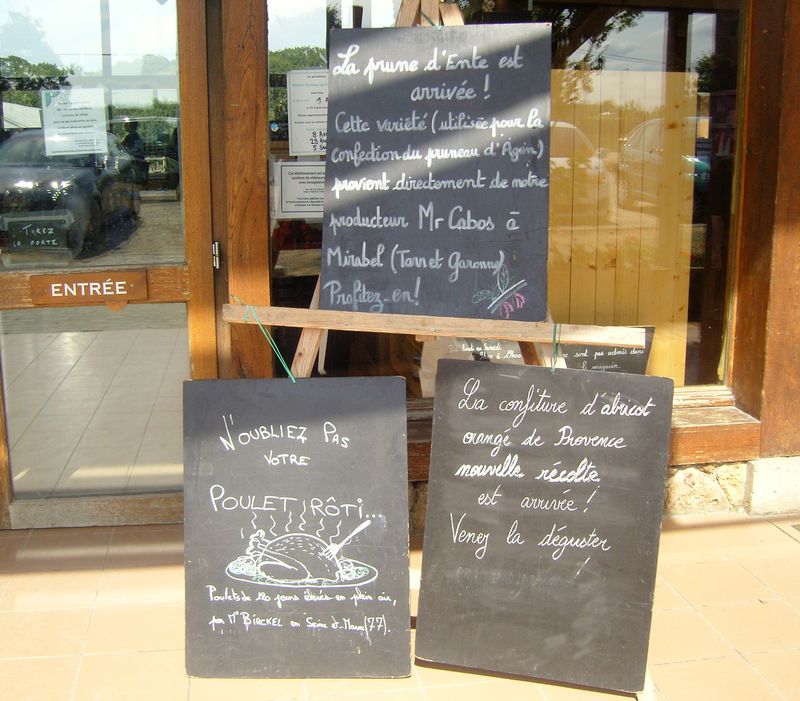 La prune d'Ente est
arrivée !
Cette variété (utilisée pour la
confection du pruneau d'Agen)
provient directement de notre
producteur Mr Cabos à
Mirabel (Tarn et Garonne)
Profitez-en!
TIREZ
LA PORTE
ENTRÉE
N'OUBLIEZ PAS
VOTRE
POULET RÔTI...
Poulets de 120 jours élevés en plein air,
par Mr BIRCKEL en Seine et-Marne (77).
La confiture d'abricot
orange de Provence
nouvelle récolte
est arrivée !
Venez la déguster